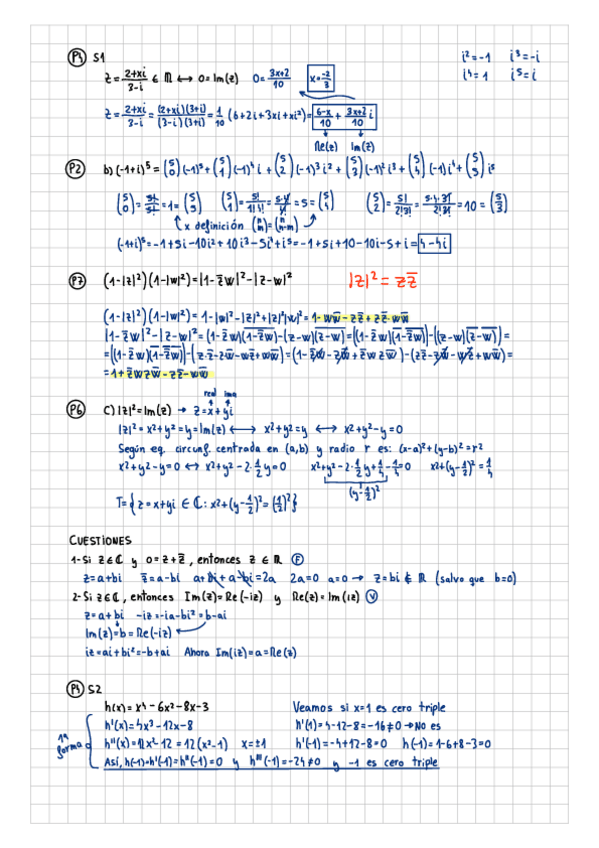 P1 S1
z = (2+xi)/(3-i) ∈ ℝ ⟷ 0 = Im(z) 0 = (3x+2)/10 x = -2/3
i² = -1 i³ = -i
i⁴ = 1 i⁵ = i
z = (2+xi)/(3-i) = (2+xi)(3+i)/(3-i)(3+i) = 1/10 (6+2i+3xi+xi²) = (6-x)/10 + (3x+2)/10 i
Re(z) Im(z)
P2 b) (-1+i)⁵ = (5 0)(-1)⁵ + (5 1)(-1)⁴ i + (5 2)(-1)³ i² + (5 3)(-1)² i³ + (5 4)(-1) i⁴ + (5 5) i⁵
(5 0) = 5!/5! = 1 = (5 5) (5 1) = 5!/1!4! = 5·4!/4! = 5 = (5 4) (5 2) = 5!/2!3! = 5·4·3!/2!3! = 10 = (5 3)
x definición (n m) = (n n-m)
(-1+i)⁵ = -1+5i-10i²+10i³-5i⁴+i⁵ = -1+5i+10-10i-5+i = 4-4i
P7 (1-|z|²)(1-|w|²) = |1-z̄w|² - |z-w|² |z|² = zz̄
(1-|z|²)(1-|w|²) = 1-|w|²-|z|²+|z|²|w|² = 1-ww̄-zz̄+zz̄·ww̄
|1-z̄w|²-|z-w|² = (1-z̄w)(1-z̄w)‾-(z-w)(z-w)‾ = ((1-z̄w)(1-z̄w)‾)-((z-w)(z-w)‾) =
= ((1-z̄w)(1-z̄w)‾)-(z·z̄-zw̄-wz̄+ww̄) = (1-z̄w-zw̄+z̄wzw̄)-(zz̄-zw̄-wz̄+ww̄) =
= 1+z̄wzw̄-zz̄-ww̄
P6 C) |z|² = Im(z) → z = x+yi
real ima
|z|² = x²+y² = y = Im(z) ⟷ x²+y² = y ⟷ x²+y²-y = 0
Según eq. circunf. centrada en (a,b) y radio r es: (x-a)²+(y-b)² = r²
x²+y²-y = 0 ↔ x²+y²-2·1/2 y = 0 x²+y²-2·1/2 y+1/4-1/4 = 0 x²+(y-1/2)² = 1/4
(y-1/2)²
T = {z = x+yi ∈ ℂ: x²+(y-1/2)² = (1/2)²}
CUESTIONES
1-Si z∈ℂ y 0 = z+z̄, entonces z ∈ ℝ F
z = a+bi z̄ = a-bi a+bi+a-bi = 2a 2a = 0 a = 0 → z = bi ∉ ℝ (salvo que b=0)
2-Si z∈ℂ, entonces Im(z) = Re(-iz) y Re(z) = Im(iz) V
z = a+bi -iz = -ia-bi² = b-ai
Im(z) = b = Re(-iz)
iz = ai+bi² = -b+ai Ahora Im(iz) = a = Re(z)
P4 S2
h(x) = x⁴-6x²-8x-3 Veamos si x=1 es cero triple
1ª forma
h'(x) = 4x³-12x-8 h'(1) = 4-12-8 = -16 ≠ 0 → No es
h''(x) = 12x²-12 = 12(x²-1) x = ±1 h'(-1) = -4+12-8 = 0 h(-1) = 1-6+8-3 = 0
Así, h(-1) = h'(-1) = h''(-1) = 0 y h'''(-1) = -24 ≠ 0 y -1 es cero triple